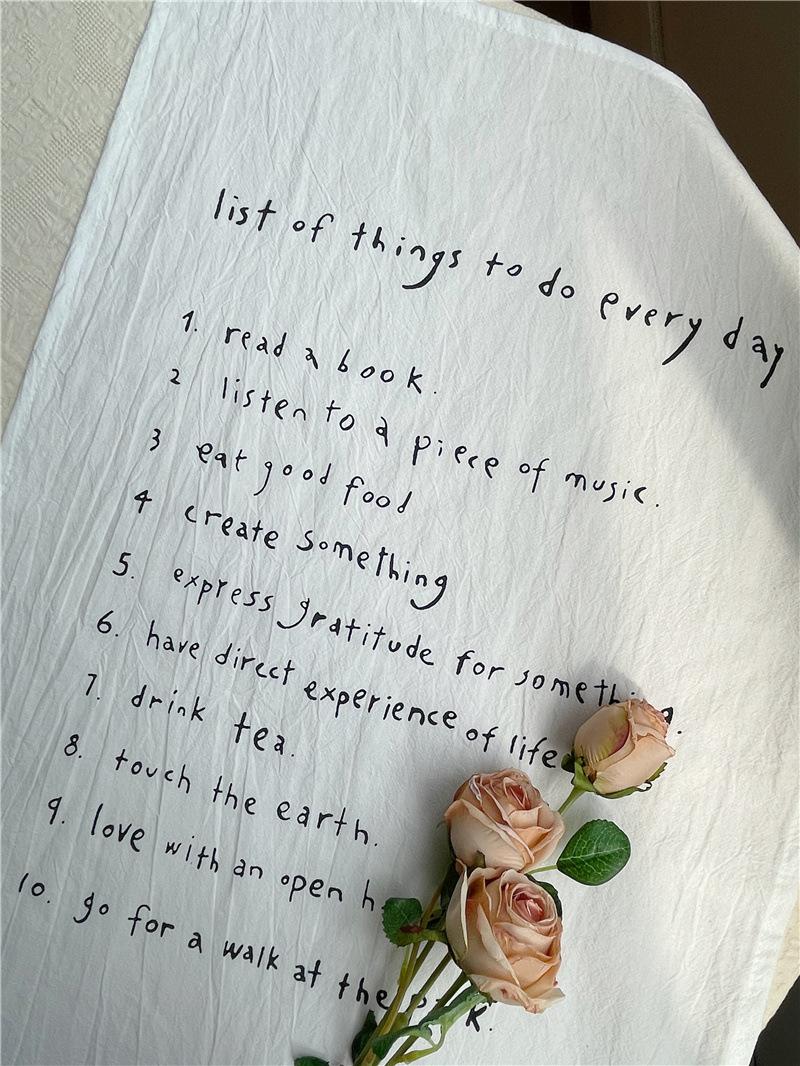 list of things to do every day
1. read a book.
2 listen to a piece of music.
3 eat good food
4 create something
5. express gratitude for something.
6. have direct experience of life
7. drink tea.
8. touch the earth.
9. love with an open
10. go for a walk at the